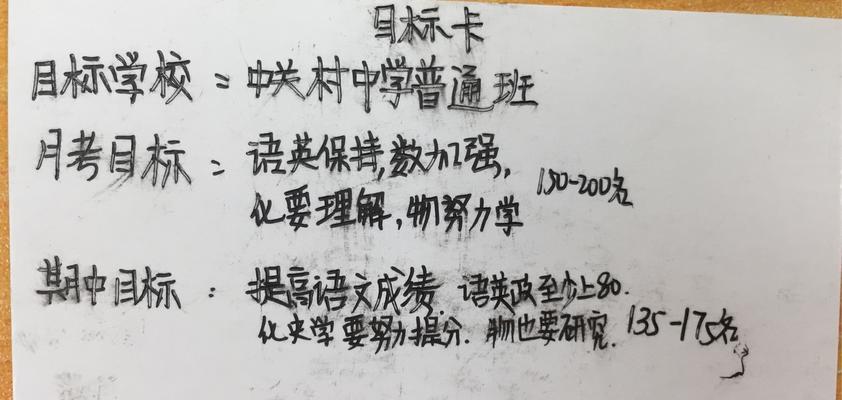 目标卡
目标学校：中关村中学普通班
月考目标：语英保持,数加强,
化要理解,物努力学 150-200名
期中目标：提高语文成绩.语英政至少上80.
化史学要努力提分.物也要研究.135-175名